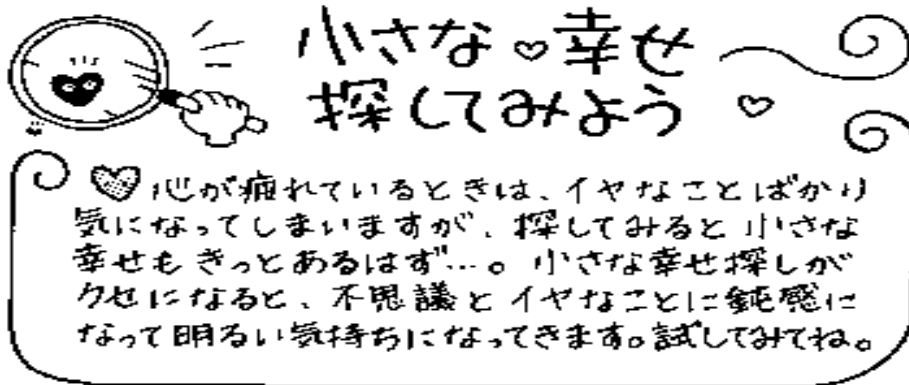 小さな♡幸せ
探してみよう
心が疲れているときは、イヤなことばかり
気になってしまいますが、探してみると小さな
幸せもきっとあるはず…。小さな幸せ探しが
クセになると、不思議とイヤなことに鈍感に
なって明るい気持ちになってきます。試してみてね。